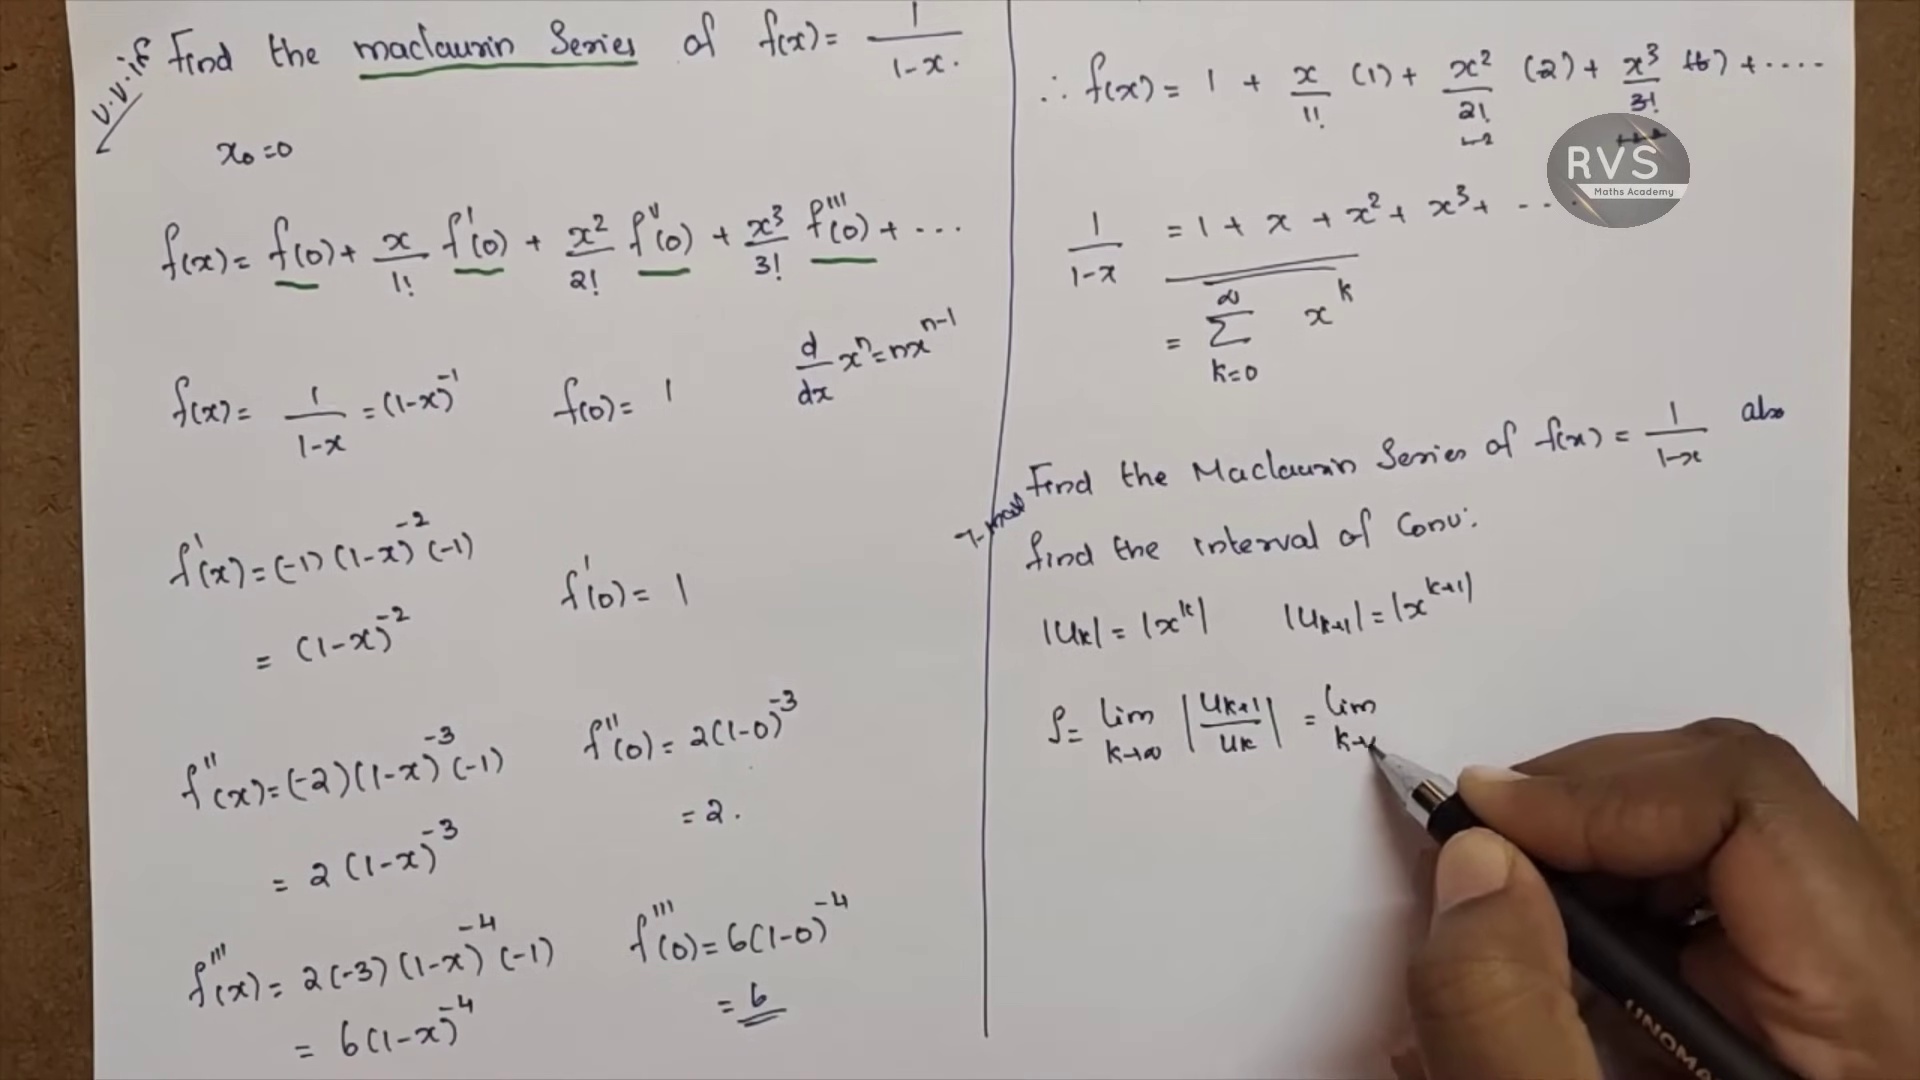 v.v.if Find the maclaurin Series of f(x) = 1/1-x.
x₀=0
f(x) = f(0) + x/1! f'(0) + x²/2! f''(0) + x³/3! f'''(0) + ...
d/dx xⁿ = nxⁿ⁻¹
f(x) = 1/1-x = (1-x)⁻¹ f(0) = 1
f'(x) = (-1) (1-x)⁻² (-1)
= (1-x)⁻² f'(0) = 1
f''(x) = (-2) (1-x)⁻³ (-1) f''(0) = 2(1-0)⁻³
= 2 (1-x)⁻³ = 2.
f'''(x) = 2(-3) (1-x)⁻⁴ (-1) f'''(0) = 6(1-0)⁻⁴
= 6(1-x)⁻⁴ = 6
∴ f(x) = 1 + x/1! (1) + x²/2! (2) + x³/3! (6) + ....
RVS
Maths Academy
1/1-x = 1 + x + x² + x³ + ...
= ∞ Σ k=0 xᵏ
Find the Maclaurin Series of f(x) = 1/1-x also
find the interval of Conv:
|uₖ| = |xᵏ| |uₖ₊₁| = |xᵏ⁺¹|
ρ = lim k→∞ |uₖ₊₁/uₖ| = lim k→